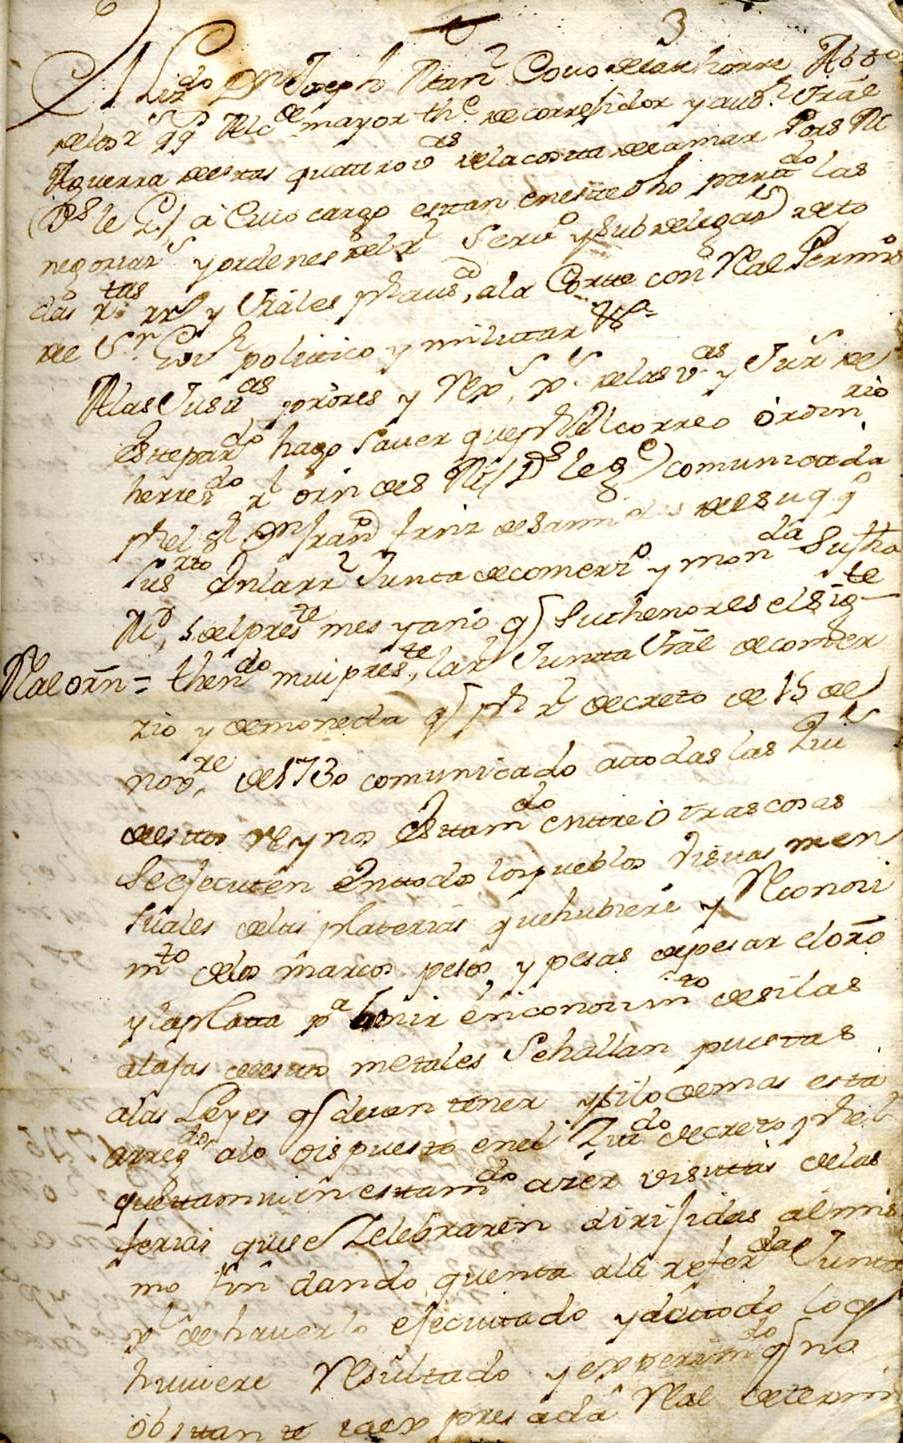 3
El Lizdo Dn Joseph Antan Covo de la thorre Abdo
de los Rs qqs Alce mayor the de correxidor y audr Gral
de guerra de estas quatro vas de la costa de la mar Por S M
(Ds le G.) a Cuio cargo estan en este dho partdo las
negoziars y ordenes del Rl Servo y subdelegan de to
das Rtas rrs y Grales pr ausa, a la Corte con Real Permiso
de Sr Govr politico y militar &a
A las Justias priores y Rexs, vs de las vas y Jurs de
este partdo hago saver que pr el correo ordinrio
herrerdo Rl orn de S M (Ds le ge) comunicada
pr el Sr Dn Frano frnz de Samn des de su qqo
Susrio En la Rl Junta de comerzo y monda Su fha
Md, 5 del preste mes y año q su thenor es el sigte
Real orn = thendo mui preste, la Rl Junta Gral de comer
zio y de moneda q pr Rl decreto de 15 de
novre de 1730 comunicado a todas las Jus
de estos reynos Esta mdo entre otras cosas
Se ejecuten En todos los pueblos visitas men
suales de las platerias que hubiere y Reconozi
mto de los marcos pesos, y pesas de pesar el oro
y la plata pa benir en conozimto de si las
alajas de estos metales se hallan puestas
a las Leyes q devan tener y si lo demas esta
arregdo, a lo dispuesto en el Zitdo decreto pr el
que tamvien esta mdo azer visitas de las
ferias que se Zelebraren dirijidas al mis
mo fin dando quenta a la referda Junta
Rl de haverlo ejecutado y de todo lo q
huviere resultado y experimdo q no
obstante la expresada Real determi